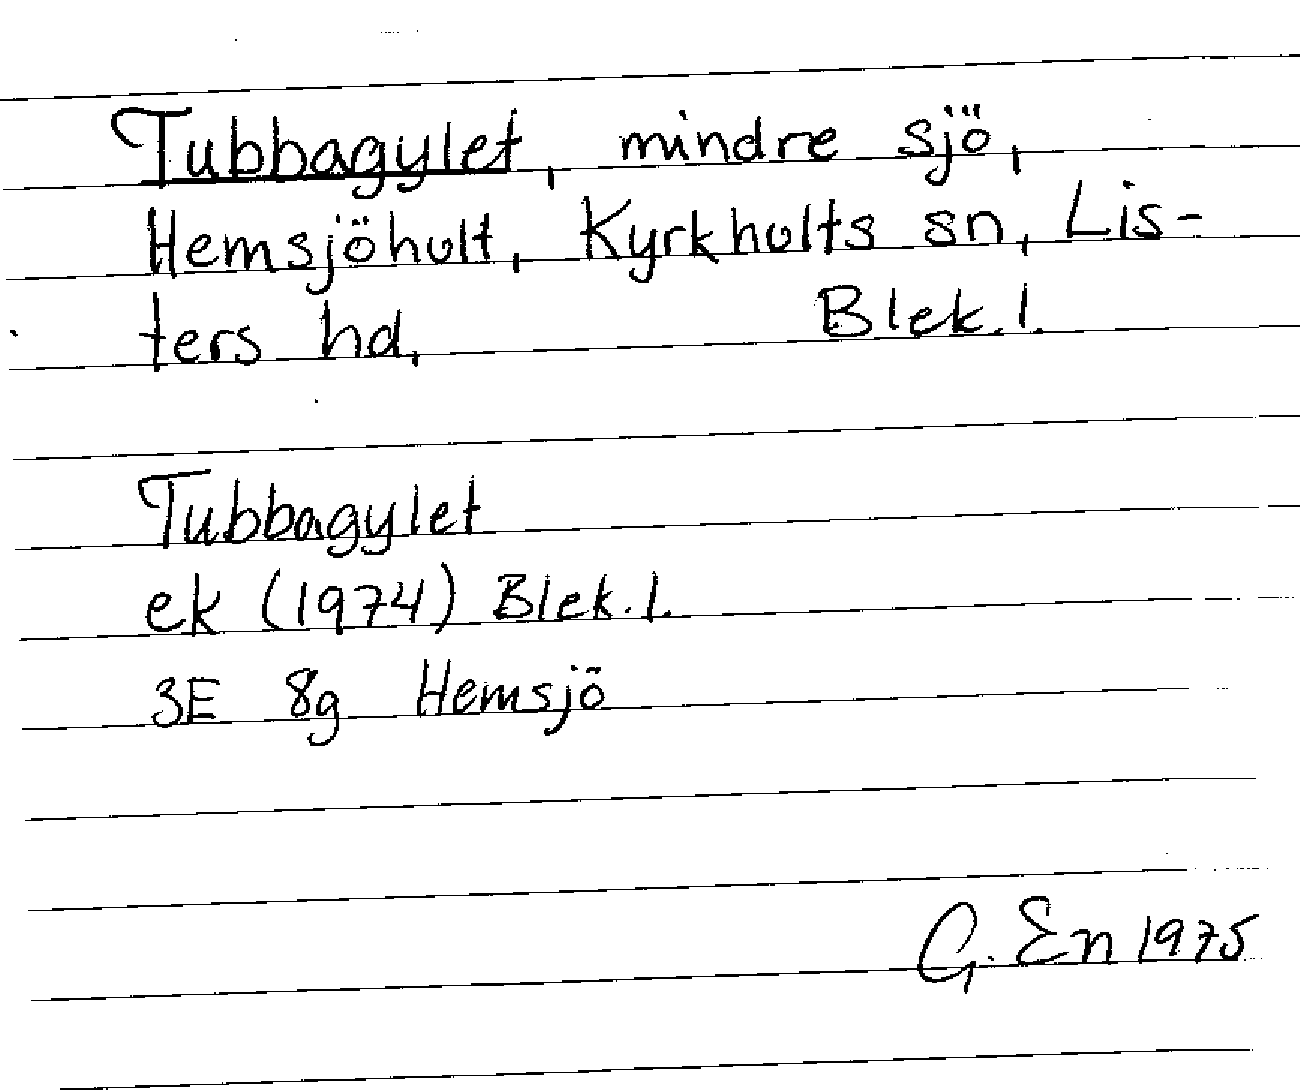 Tubbagylet, mindre sjö,
Hemsjöhult, Kyrkhults sn, Lis-
ters hd, Blek.l.
Tubbagylet
ek (1974) Blek.l.
3E 8g Hemsjö
G. En 1975